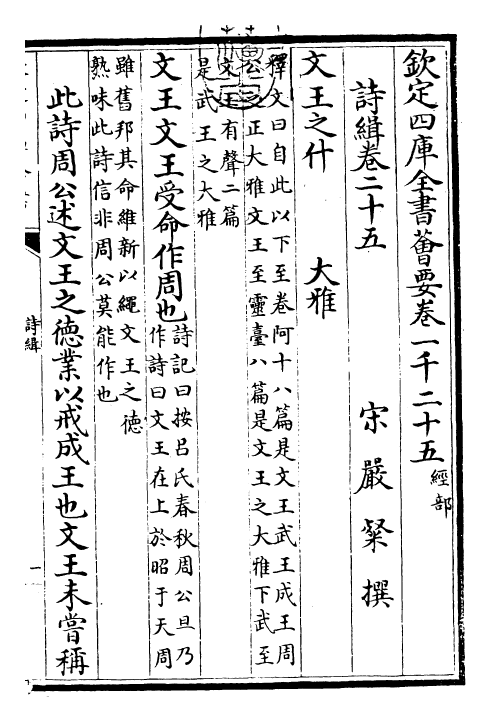 欽定四庫全書薈要卷一千二十五 經部
詩緝卷二十五
宋 嚴粲 撰
文王之什 大雅
釋文曰自此以下至卷阿十八篇是文王武王成王周
公之正大雅文王至靈臺八篇是文王之大雅下武至
文王有聲二篇
是武王之大雅
文王文王受命作周也
詩記曰按呂氏春秋周公旦乃
作詩曰文王在上於昭于天周
雖舊邦其命維新以繩文王之德
熟味此詩信非周公莫能作也
此詩周公述文王之德業以戒成王也文王未嘗稱
詩緝
一